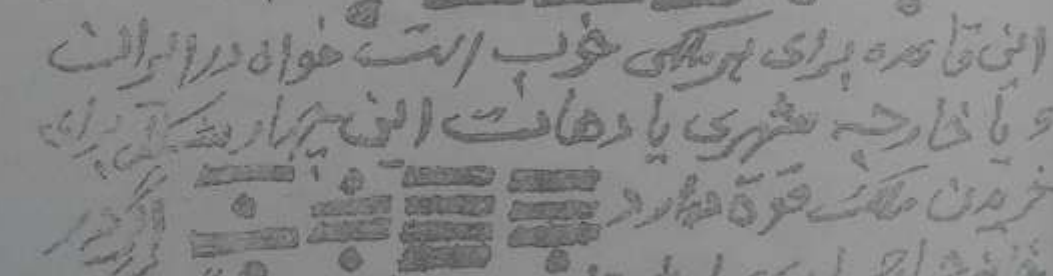 این قاعده برای هر ملکی خوب است خواه در ایران
و یا خارجه شهری یا دهات این چهار شکل برای
خریدن ملک قوة دارد
اگر در